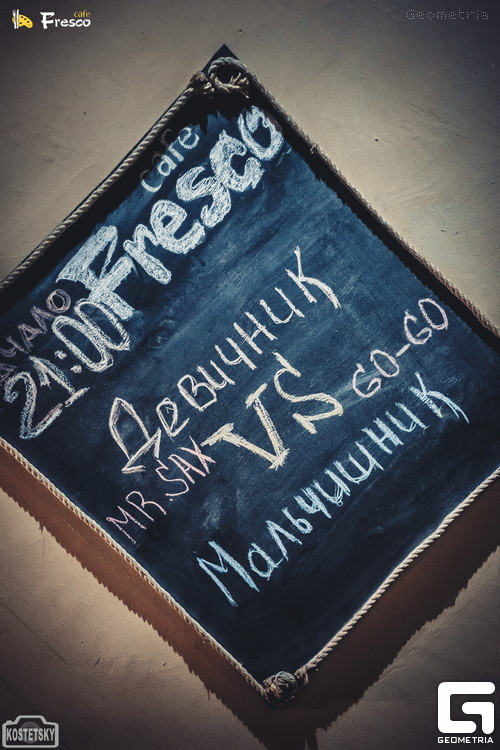 cafe
Fresco
Geometria
cafe
Fresco
НАЧАЛО
21:00
Девичник
MR. SAX
VS
GO-GO
Мальчишник
KOSTETSKY
G
GEOMETRIA